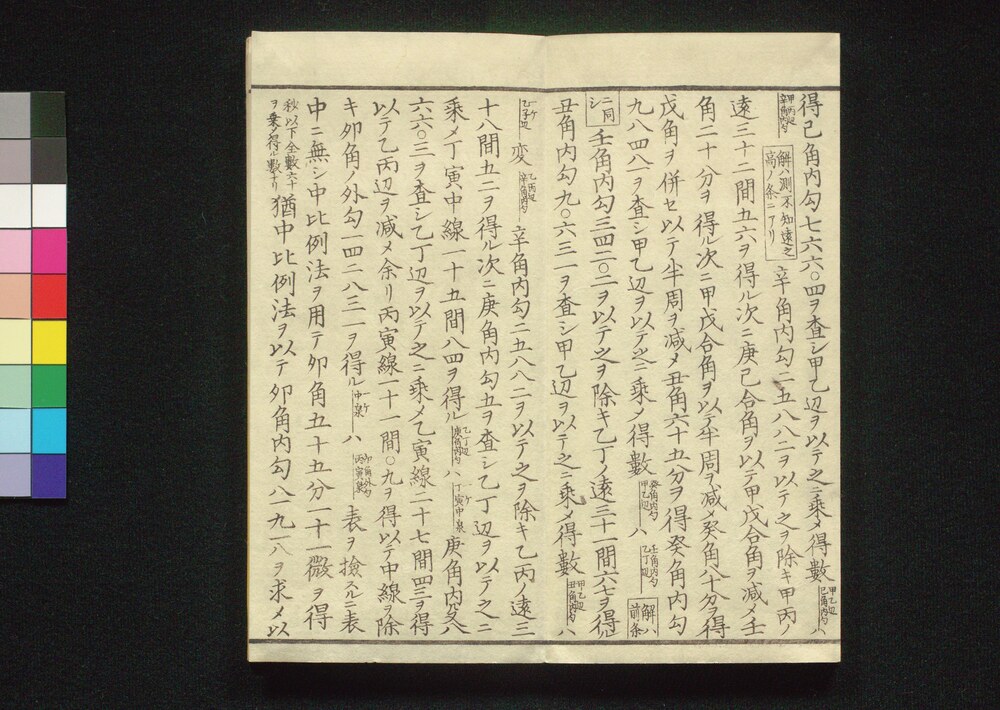 得己角内勾七六六〇四ヲ査シ甲乙辺ヲ以テ之ニ乗メ得數甲乙辺己角内勾ハ
甲丙辺辛角内勾解ハ測不知遠之高ノ条ニアリ辛角内勾二五八八二ヲ以テ之ヲ除キ甲丙ノ
遠三十二間五六ヲ得ル次ニ庚己合角ヲ以テ甲戊合角ヲ減メ壬
角二十分ヲ得ル次ニ甲戊合角ヲ以テ半周ヲ减メ癸角八十分ヲ得
戊角ヲ併セ以テ半周ヲ减メ丑角六十五分ヲ得癸角内勾
九八四八一ヲ査シ甲乙辺ヲ以テ之ニ乗メ得數癸角内勾甲乙辺ハ壬角内勾乙丁辺解ハ前条
ニ同シ壬角内勾三四二〇二ヲ以テ之ヲ除キ乙丁ノ遠三十一間六七ヲ得ル
丑角内勾九〇六三一ヲ査シ甲乙辺ヲ以テ之ニ乗メ得數甲乙辺丑角内勾ハ
一ケ乙子辺変乙丙辺辛角内勾辛角内勾二五八八二ヲ以テ之ヲ除キ乙丙ノ遠三
十八間五二ヲ得ル次ニ庚角内勾五ヲ査シ乙丁辺ヲ以テ之ニ
乗メ丁寅中線一十五間八四ヲ得ル乙丁辺庚角内勾ハ一ケ丁寅中泉庚角内殳八
六六〇三ヲ査シ乙丁辺ヲ以テ之ニ乗メ乙寅線二十七間四三ヲ得
以テ乙丙辺ヲ减メ余リ丙寅線一十一間〇九ヲ得以テ中線ヲ除
キ夘角ノ外勾一四二八三一ヲ得ル一ケ中泉ハ夘角外勾丙寅泉表ヲ撿スルニ表
中ニ無シ中比例法ヲ用テ夘角五十五分一十一微ヲ得
秒以下全數六十ヲ乗メ得ル數ナリ猶中比例法ヲ以テ夘角内勾八一九一八ヲ求メ以